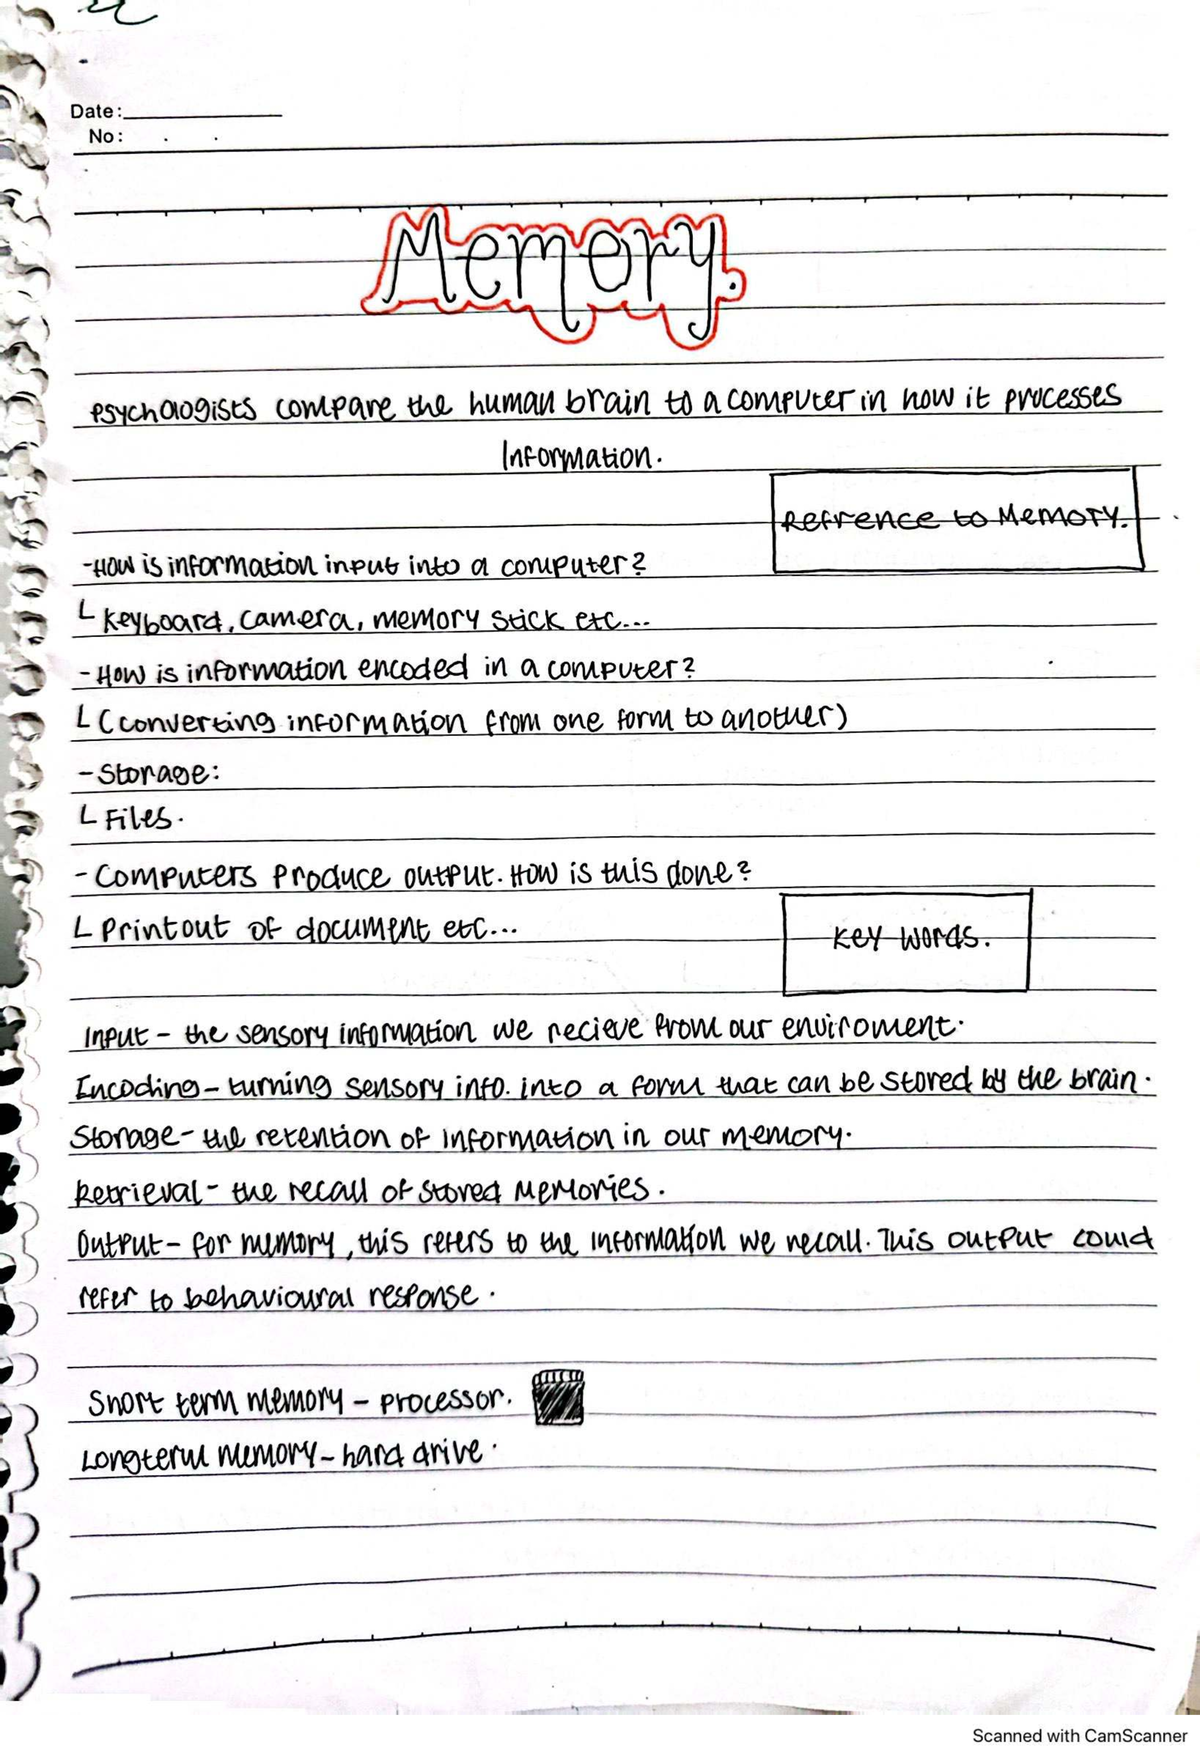 Date:
No:
Memory.
Psychologists compare the human brain to a computer in how it processes
Information.
Refrence to Memory.
-How is information input into a computer?
└ Keyboard, camera, memory stick etc...
-How is information encoded in a computer?
└ (converting information from one form to another)
-Storage:
└ Files.
-Computers produce output. How is this done?
└ Printout of document etc...
Key words.
Input - the sensory information we recieve from our enviroment.
Encoding - turning sensory info. into a form that can be stored by the brain.
Storage - the retention of information in our memory.
Retrieval - the recall of stored memories.
Output - for memory, this refers to the information we recall. This output could
refer to behavioural response.
Short term memory - processor.
Longterm memory - hard drive.
Scanned with CamScanner